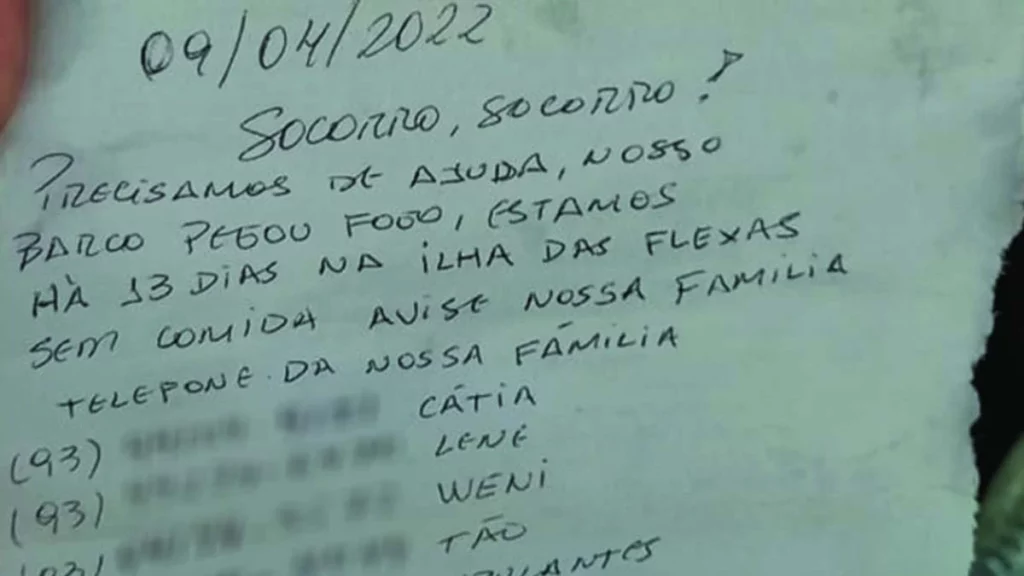 09/04/2022
SOCORRO, SOCORRO!
PRECISAMOS DE AJUDA, NOSSO
BARCO PEGOU FOGO, ESTAMOS
HÀ 13 DIAS NA ILHA DAS FLEXAS
SEM COMIDA AVISE NOSSA FAMILIA
TELEPONE DA NOSSA FÁMILIA
(93) CÁTIA
(93) LENE
WENI
TÃO